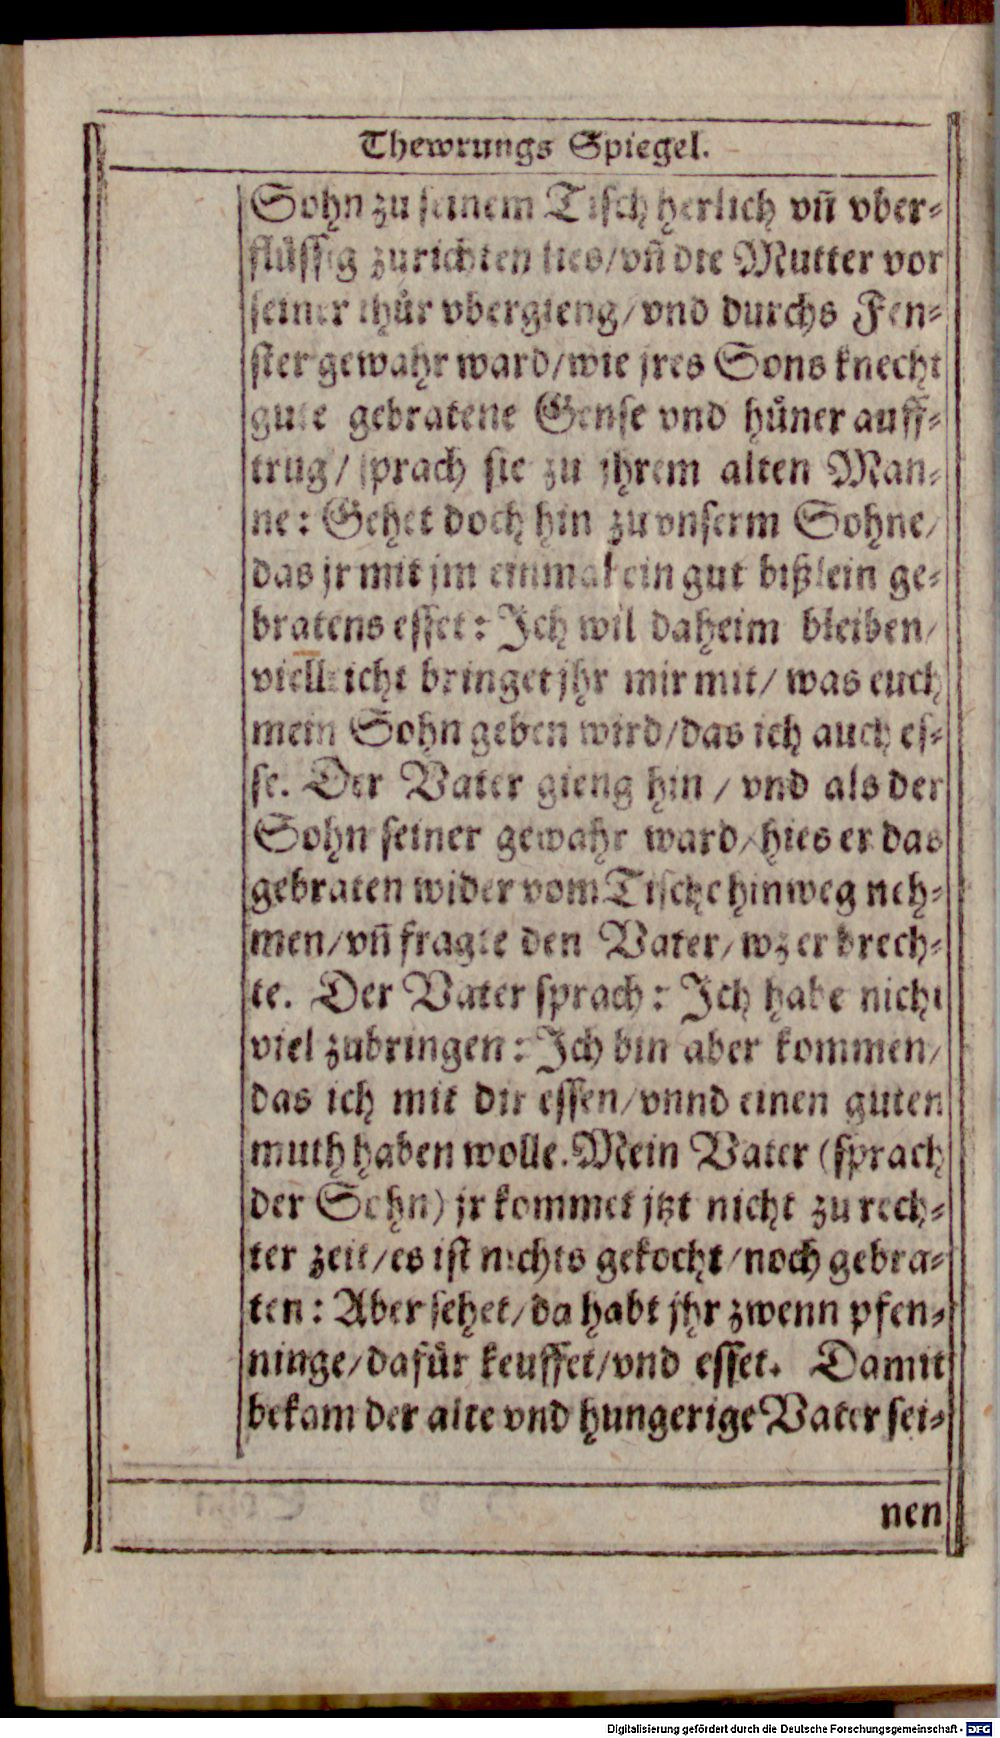 Thewrungs Spiegel.
Sohn zu seinem Tisch herlich vñ vber-
flüssig zurichten lies/vñ die Mutter vor
seiner thür vbergieng/vnd durchs Fen-
ster gewahr ward/wie jres Sons knecht
gute gebratene Gense vnd hüner auff-
trug/sprach sie zu jhrem alten Man-
ne: Gehet doch hin zu vnserm Sohne/
das jr mit jm einmal ein gut bißlein ge-
bratens esset: Ich wil daheim bleiben/
vielleicht bringet jhr mir mit/was euch
mein Sohn geben wird/das ich auch es-
se. Der Vater gieng hin/vnd als der
Sohn seiner gewahr ward/hies er das
gebraten wider vom Tische hinweg neh-
men/vñ fragte den Vater/wz er brech-
te. Der Vater sprach: Ich habe nicht
viel zubringen: Ich bin aber kommen/
das ich mit dir essen/vnnd einen guten
muth haben wolle. Mein Vater (sprach
der Sohn) jr kommet jtzt nicht zu rech-
ter zeit/es ist nichts gekocht/noch gebra-
ten: Aber sehet/da habt jhr zwenn pfen-
ninge/dafür keuffet/vnd esset. Damit
bekam der alte vnd hungerige Vater sei-
nen
Digitalisierung gefördert durch die Deutsche Forschungsgemeinschaft - DFG